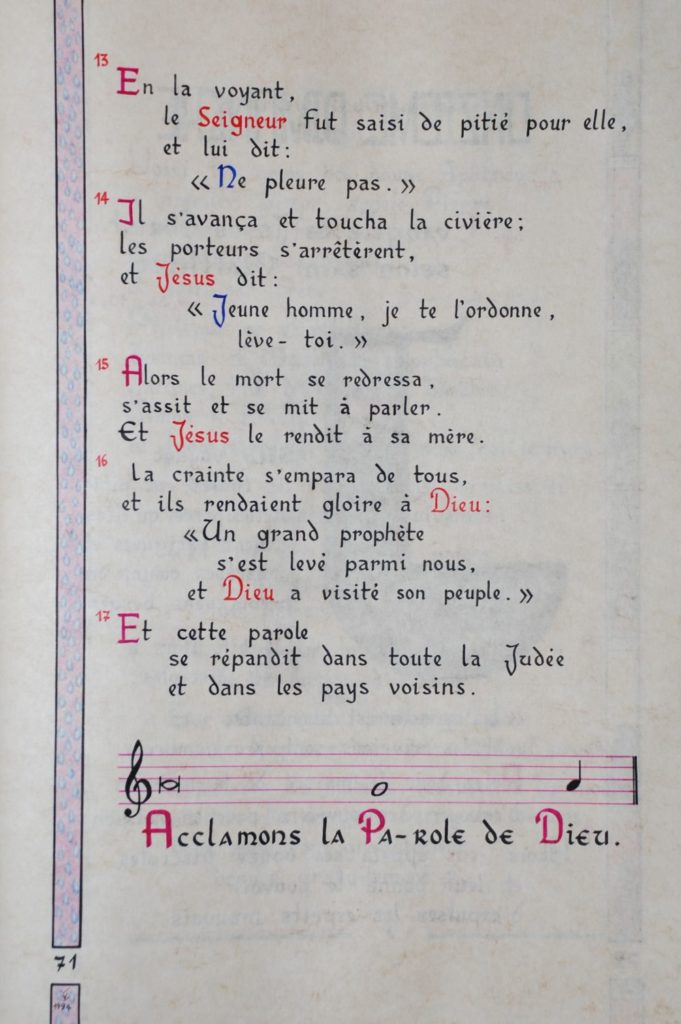 13
En la voyant,
le Seigneur fut saisi de pitié pour elle,
et lui dit :
« Ne pleure pas. »
14
Il s'avança et toucha la civière ;
les porteurs s'arrêtèrent,
et Jésus dit :
« Jeune homme, je te l'ordonne,
lève-toi. »
15
Alors le mort se redressa,
s'assit et se mit à parler.
Et Jésus le rendit à sa mère.
16
La crainte s'empara de tous,
et ils rendaient gloire à Dieu :
«Un grand prophète
s'est levé parmi nous,
et Dieu a visité son peuple. »
17
Et cette parole
se répandit dans toute la Judée
et dans les pays voisins.
Acclamons la Pa-role de Dieu.
71
1994